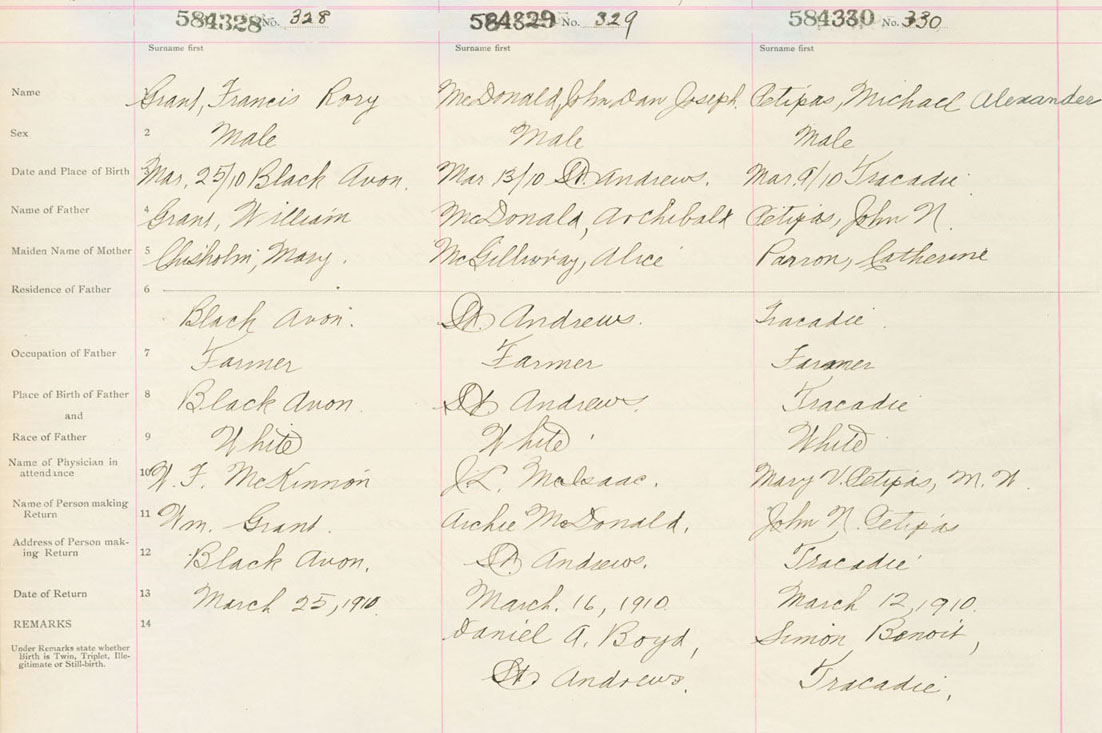 584328 No. 328 584329 No. 329 584330 No. 330
Surname first Surname first Surname first
Name 1 Grant, Francis Rory McDonald, John Dan Joseph Petipas, Michael Alexander
Sex 2 Male Male Male
Date and Place of Birth 3 Mar. 25/10 Black Avon. Mar 13/10 St. Andrews. Mar. 9/10 Tracadie
Name of Father 4 Grant, William McDonald, Archibald Petipas, John N.
Maiden Name of Mother 5 Chisholm, Mary. McGillivray, Alice Parron, Catherine
Residence of Father 6
Black Avon. St. Andrews. Tracadie.
Occupation of Father 7 Farmer Farmer Farmer
Place of Birth of Father 8 Black Avon. St. Andrews. Tracadie
and
Race of Father 9 White White White
Name of Physician in
attendance 10 W. F. McKinnon J.L. McIsaac. Mary V. Petipas, M. W.
Name of Person making
Return 11 Wm. Grant. Archie McDonald. John N. Petipas
Address of Person mak-
ing Return 12 Black Avon. St. Andrews. Tracadie
Date of Return 13 March 25, 1910. March. 16, 1910. March 12, 1910.
REMARKS 14 Daniel A. Boyd, Simon Benoit,
Under Remarks state whether
Birth is Twin, Triplet, Ille-
gitimate or Still-birth.
St. Andrews. Tracadie,